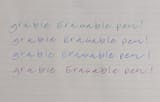 grabie Erasable pen!
grabie Erasable pen!
grabie Erasable pen!
grabie Erasable pen!